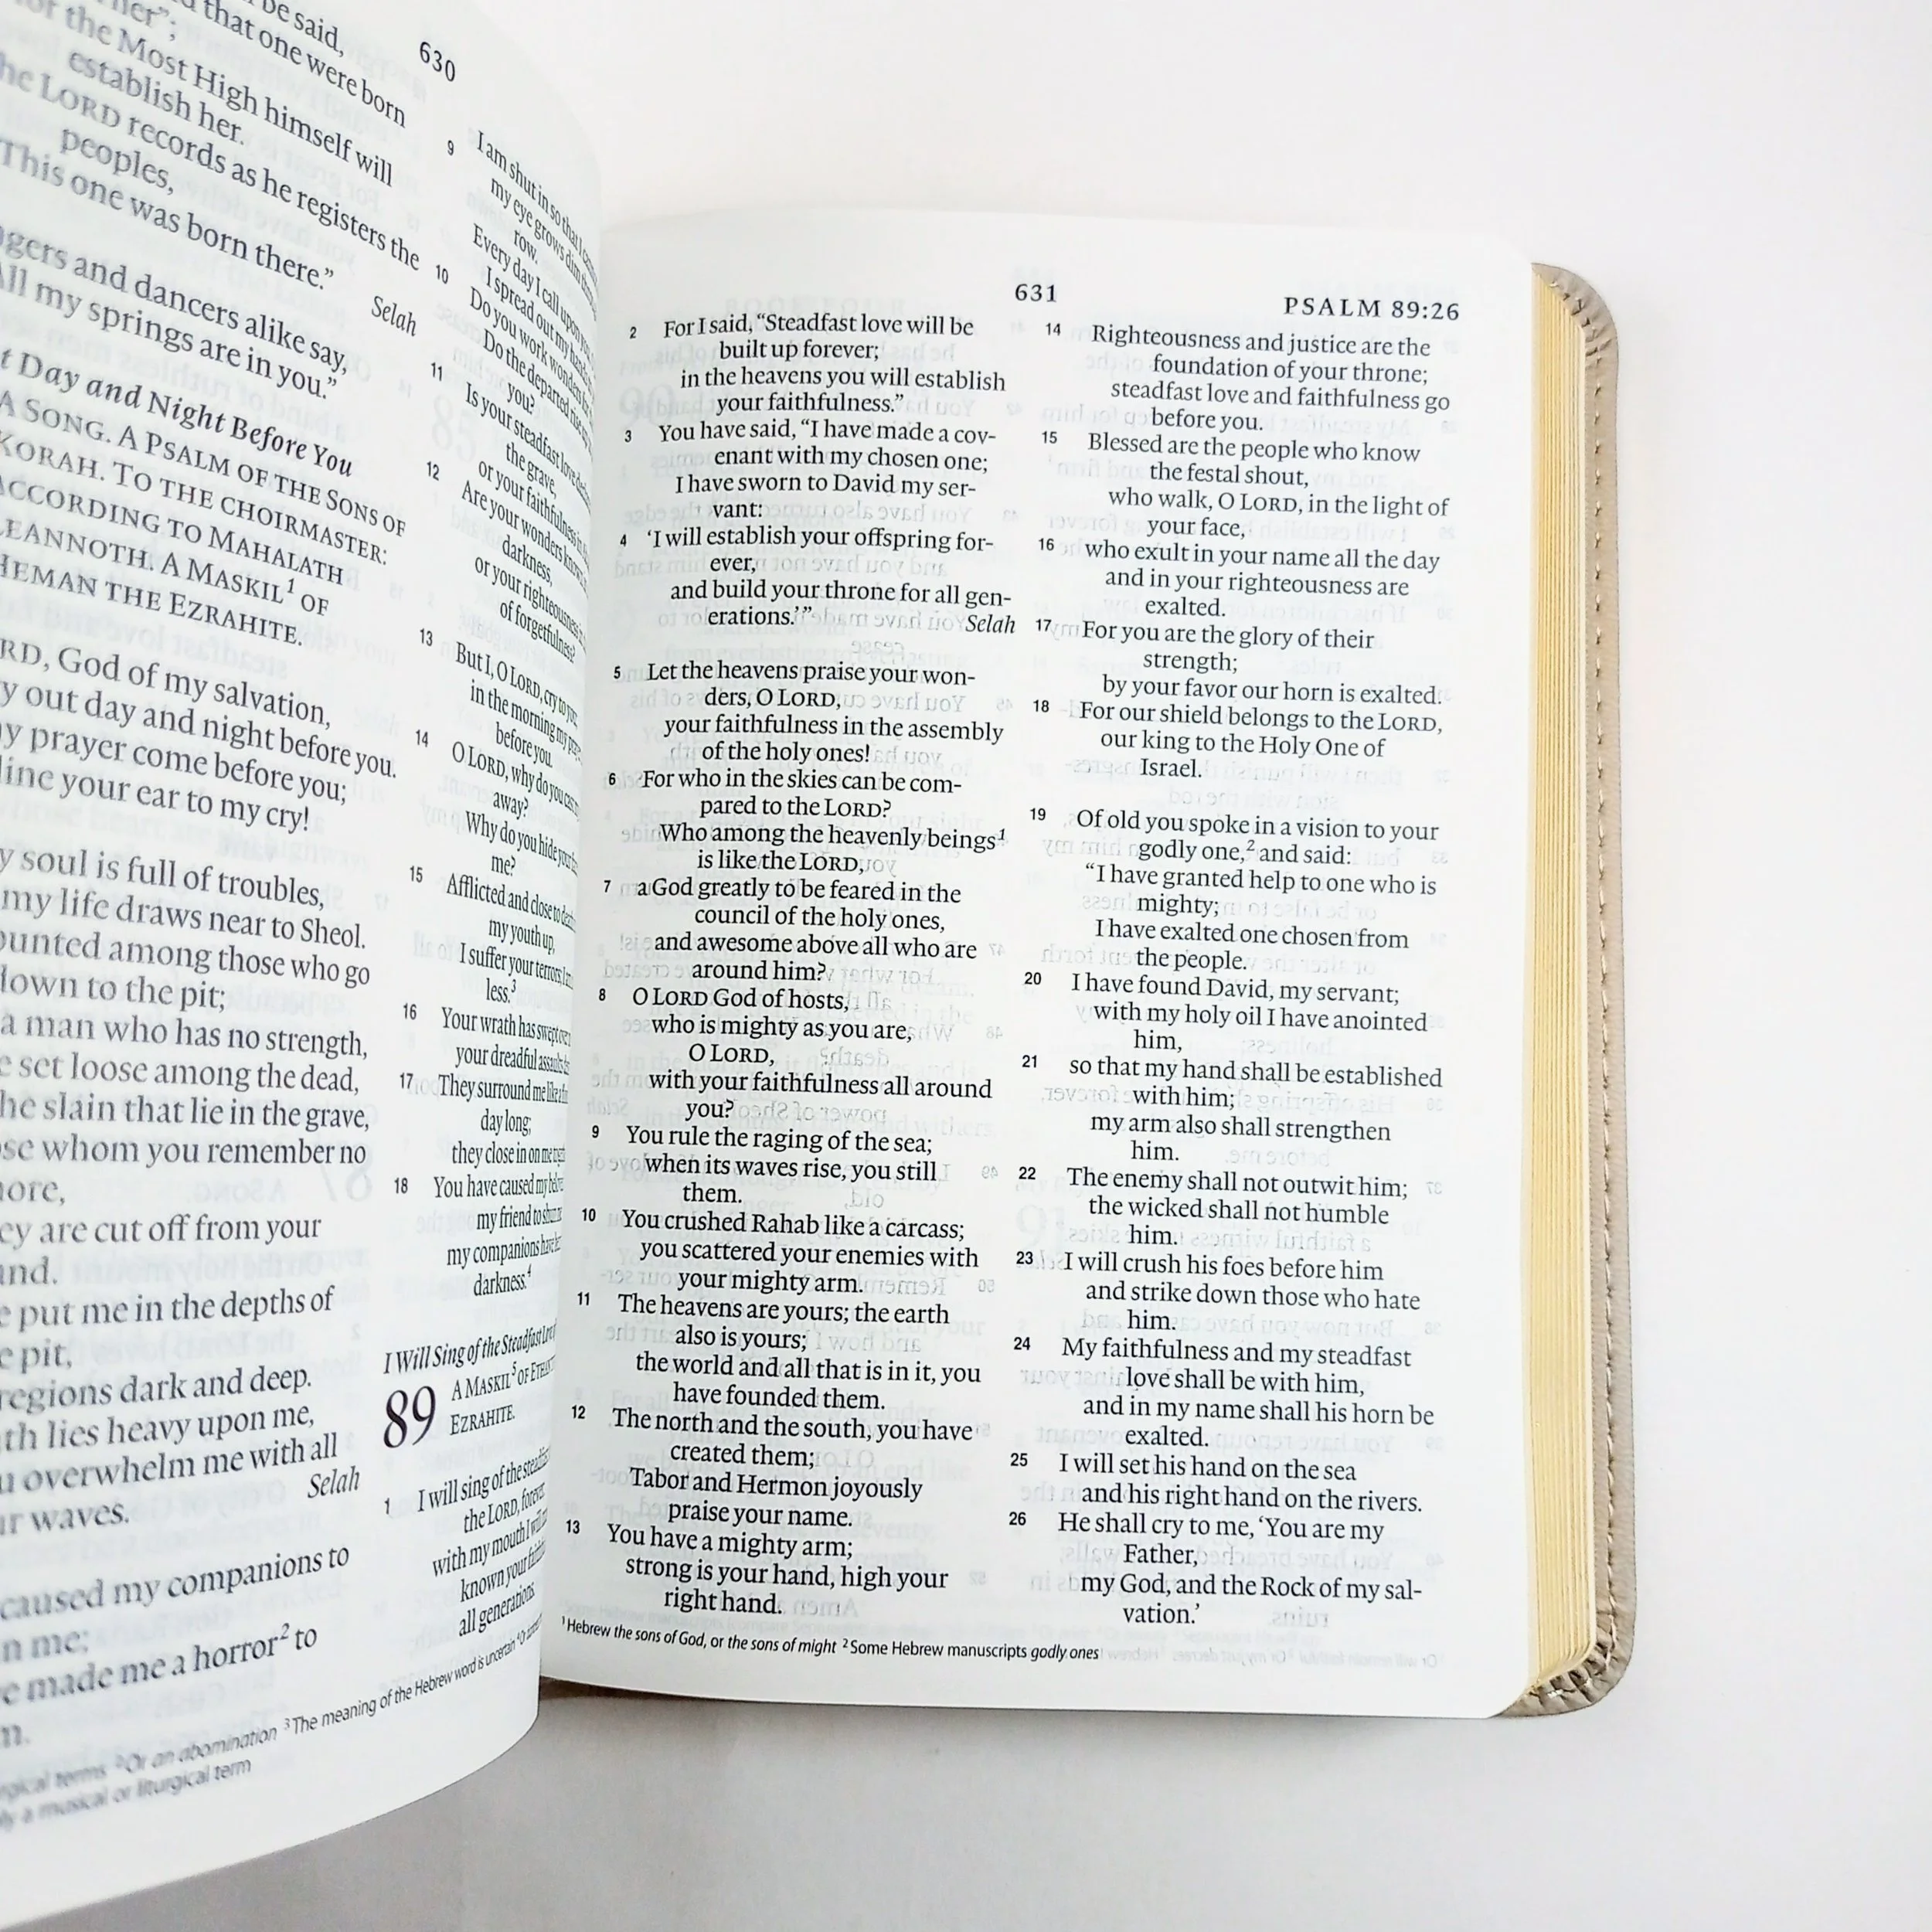 be said,
that one were born
the Most High himself will
establish her.
LORD records as he registers the
peoples,
This one was born there.”
Selah
and dancers alike say,
All my springs are in you.”
Day and Night Before You
A SONG. A PSALM OF THE SONS OF
KORAH. TO THE CHOIRMASTER:
ACCORDING TO MAHALATH
LEANNOTH. A MASKIL1 OF
HEMAN THE EZRAHITE.
God of my salvation,
out day and night before you.
prayer come before you;
your ear to my cry!
soul is full of troubles,
my life draws near to Sheol.
among those who go
down to the pit;
a man who has no strength,
set loose among the dead,
the slain that lie in the grave,
whom you remember no
are cut off from your
put me in the depths of
pit,
regions dark and deep.
lies heavy upon me,
overwhelm me with all
Selah
waves.
caused my companions to
me;
made me a horror2 to
2Or an abomination 3The meaning of the Hebrew word is uncertain
a musical or liturgical term
630
9 I am shut in so that I
my eye grows dim
row.
Every day I call upon
10 I spread out my
Do you work wonders
Do the departed rise
you?
11 Is your steadfast love
the grave,
or your faithfulness
12 Are your wonders
darkness,
or your righteousness
of forgetfulness?
13 But I, O LORD, cry to
in the morning my
before you.
14 O LORD, why do you
away?
Why do you hide
me?
15 Afflicted and close to
my youth up,
I suffer your terrors;
less.3
16 Your wrath has swept
your dreadful assaults
17 They surround me like
day long;
they close in on me
18 You have caused my
my friend to
my companions have
darkness.4
I Will Sing of the Steadfast
89 A MASKIL5 OF
EZRAHITE.
1 I will sing of the
the LORD, forever;
with my mouth I will
known your
all generations.
631
PSALM 89:26
2 For I said, “Steadfast love will be
built up forever;
in the heavens you will establish
your faithfulness.”
3 You have said, “I have made a cov-
enant with my chosen one;
I have sworn to David my ser-
vant:
4 ‘I will establish your offspring for-
ever,
and build your throne for all gen-
erations.’” Selah
5 Let the heavens praise your won-
ders, O LORD,
your faithfulness in the assembly
of the holy ones!
6 For who in the skies can be com-
pared to the LORD?
Who among the heavenly beings1
is like the LORD,
7 a God greatly to be feared in the
council of the holy ones,
and awesome above all who are
around him?
8 O LORD God of hosts,
who is mighty as you are,
O LORD,
with your faithfulness all around
you?
9 You rule the raging of the sea;
when its waves rise, you still
them.
10 You crushed Rahab like a carcass;
you scattered your enemies with
your mighty arm.
11 The heavens are yours; the earth
also is yours;
the world and all that is in it, you
have founded them.
12 The north and the south, you have
created them;
Tabor and Hermon joyously
praise your name.
13 You have a mighty arm;
strong is your hand, high your
right hand.
14 Righteousness and justice are the
foundation of your throne;
steadfast love and faithfulness go
before you.
15 Blessed are the people who know
the festal shout,
who walk, O LORD, in the light of
your face,
16 who exult in your name all the day
and in your righteousness are
exalted.
17 For you are the glory of their
strength;
by your favor our horn is exalted.
18 For our shield belongs to the LORD,
our king to the Holy One of
Israel.
19 Of old you spoke in a vision to your
godly one,2 and said:
“I have granted help to one who is
mighty;
I have exalted one chosen from
the people.
20 I have found David, my servant;
with my holy oil I have anointed
him,
21 so that my hand shall be established
with him;
my arm also shall strengthen
him.
22 The enemy shall not outwit him;
the wicked shall not humble
him.
23 I will crush his foes before him
and strike down those who hate
him.
24 My faithfulness and my steadfast
love shall be with him,
and in my name shall his horn be
exalted.
25 I will set his hand on the sea
and his right hand on the rivers.
26 He shall cry to me, ‘You are my
Father,
my God, and the Rock of my sal-
vation.’
1Hebrew the sons of God, or the sons of might 2Some Hebrew manuscripts godly ones